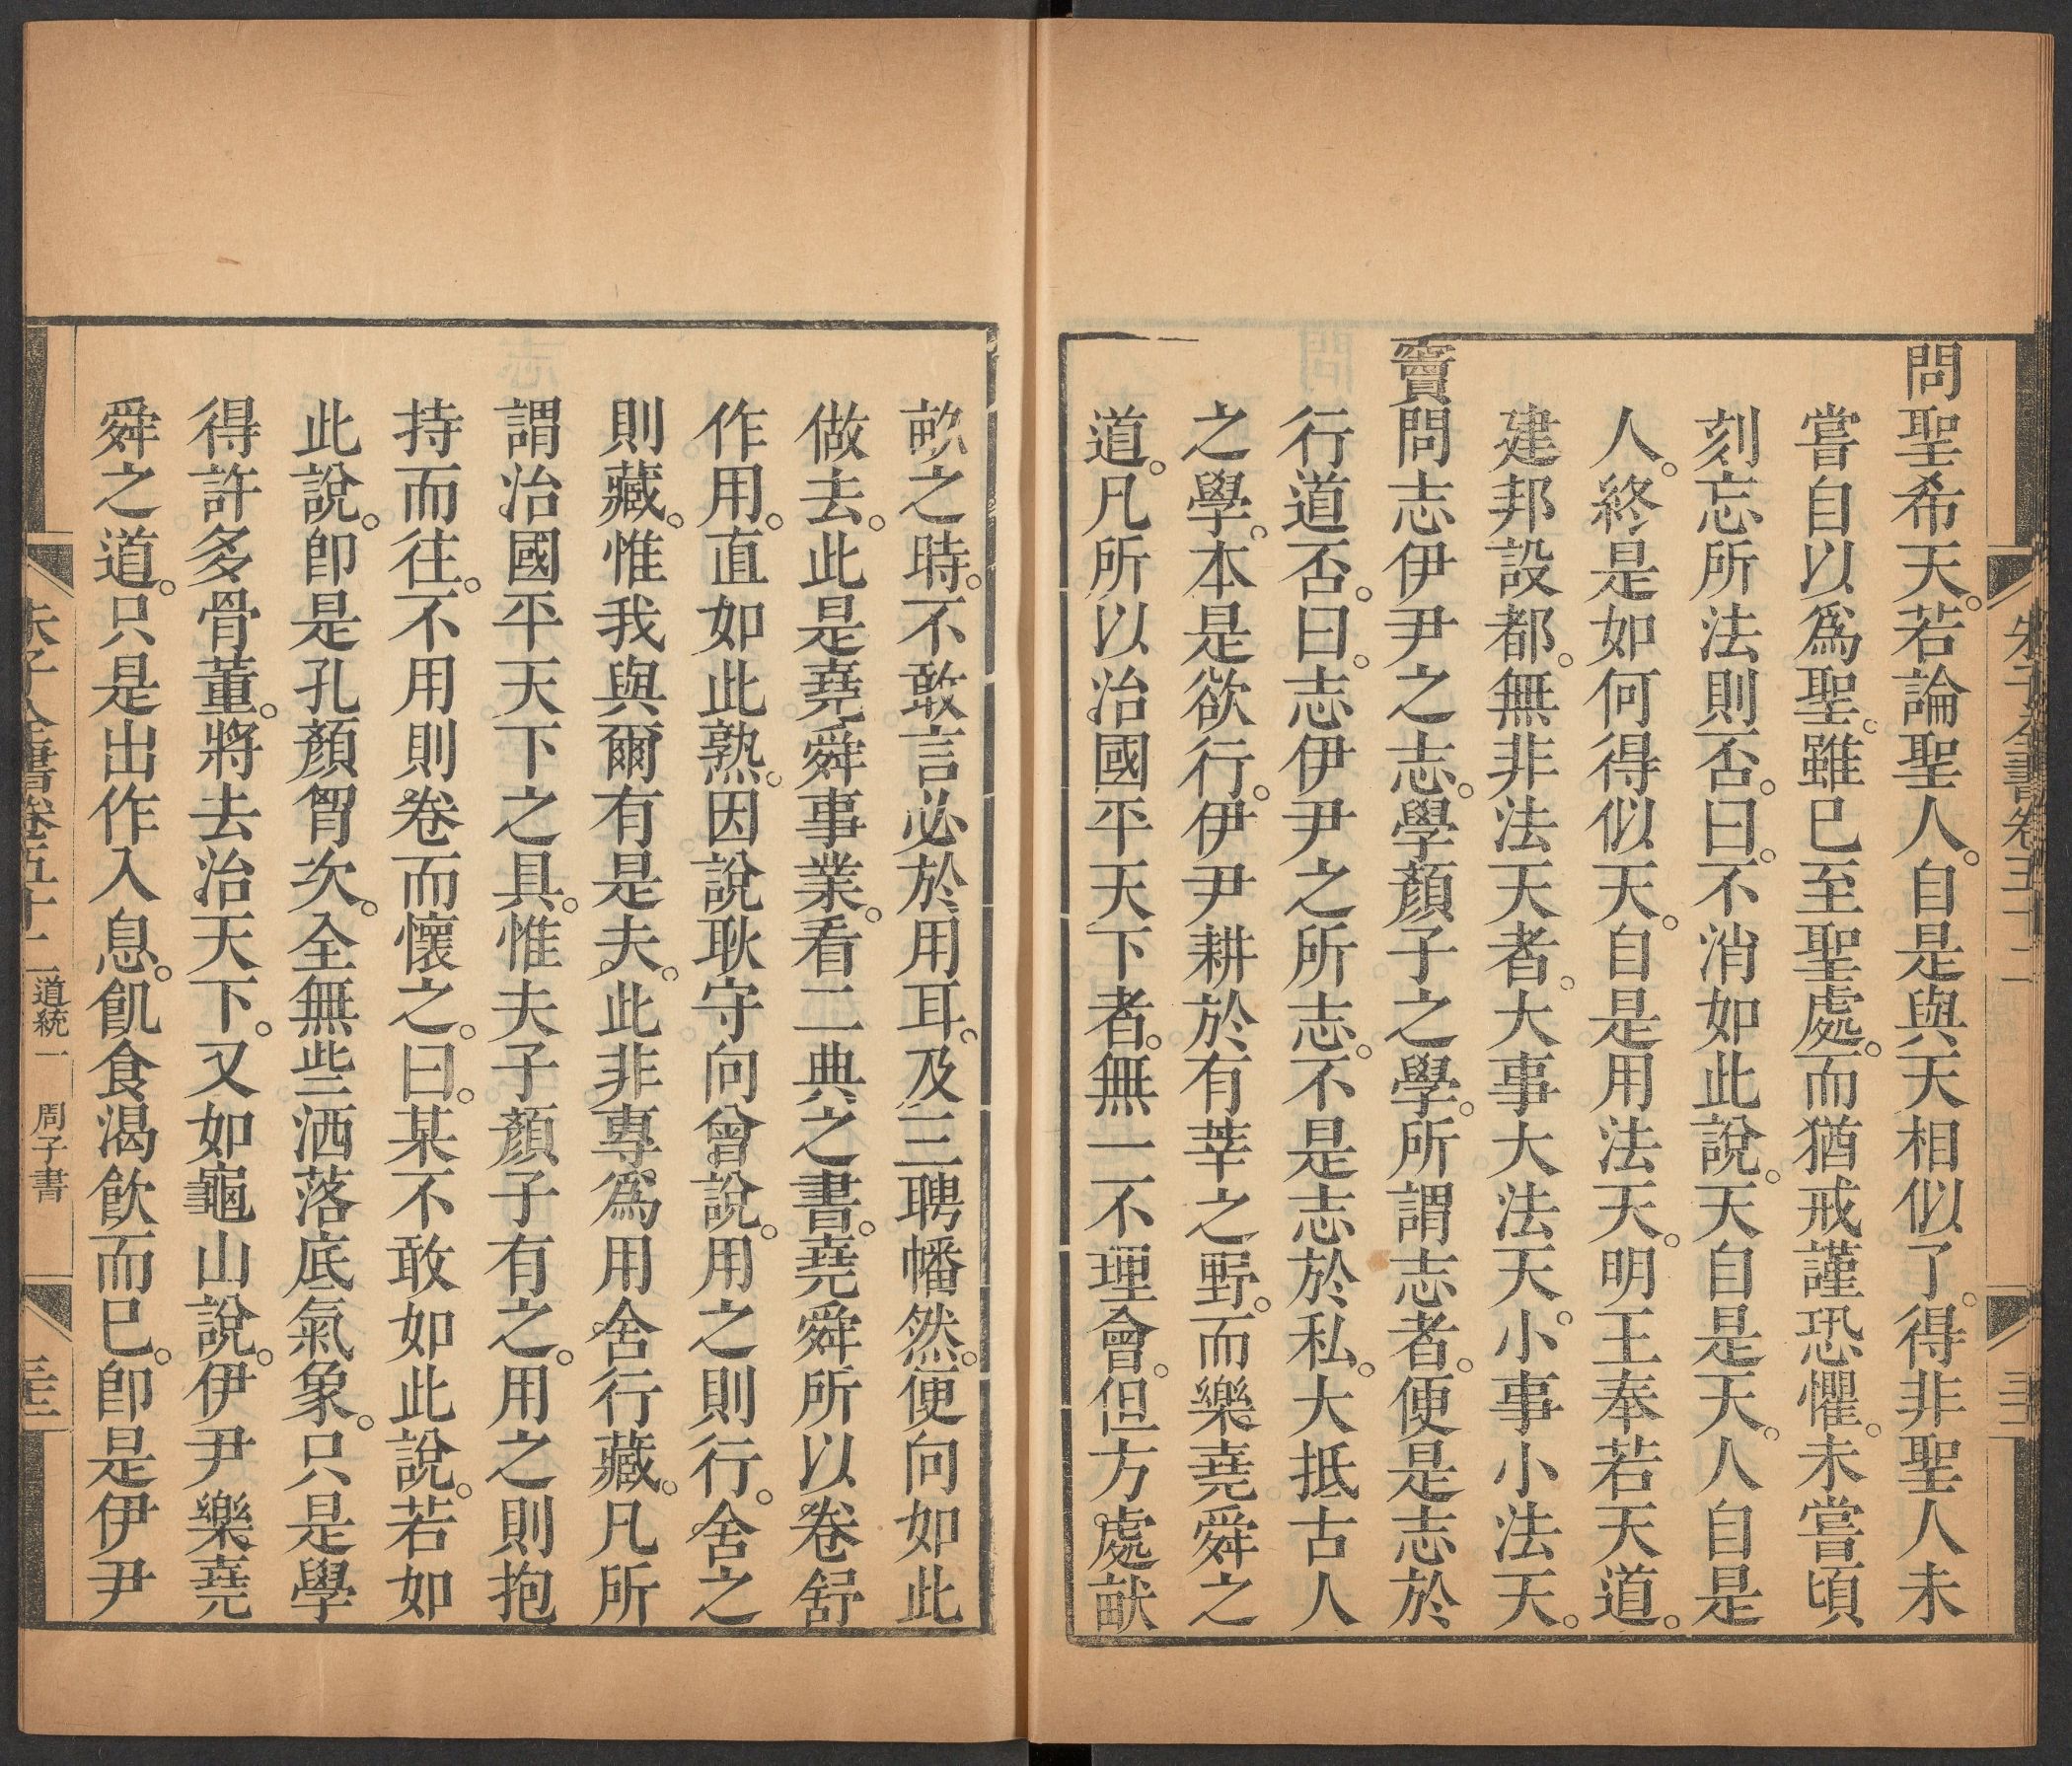 朱子全書卷五十二
三十二
問聖希天。若論聖人。自是與天相似了。得非聖人未
嘗自以爲聖。雖巳至聖處。而猶戒謹恐懼。未嘗頃
刻忘所法則否。曰。不消如此說。天自是天。人自是
人。終是如何得似天。自是用法天。明王奉若天道。
建邦設都。無非法天者。大事大法天。小事小法天。
竇問志伊尹之志。學顏子之學。所謂志者。便是志於
行道否。曰。志伊尹之所志。不是志於私。大抵古人
之學。本是欲行。伊尹耕於有莘之野。而樂堯舜之
道。凡所以治國平天下者。無一不理會。但方處畎
畝之時。不敢言必於用耳。及三聘幡然。便向如此
做去。此是堯舜事業。看二典之書。堯舜所以卷舒
作用。直如此熟。因說耿守向曾說。用之則行。舍之
則藏。惟我與爾有是夫。此非專爲用舍行藏。凡所
謂治國平天下之具。惟夫子顏子有之。用之則抱
持而往。不用則卷而懷之。曰。某不敢如此說。若如
此說。卽是孔顏胷次。全無些洒落底氣象。只是學
得許多骨董。將去治天下。又如龜山說。伊尹樂堯
舜之道。只是出作入息。飢食渴飲而巳。卽是伊尹
朱子全書卷五十二 道統一 周子書